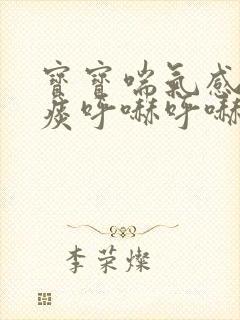 寶寶喘氣感
痰呼嚇呼嚇
李荣燦